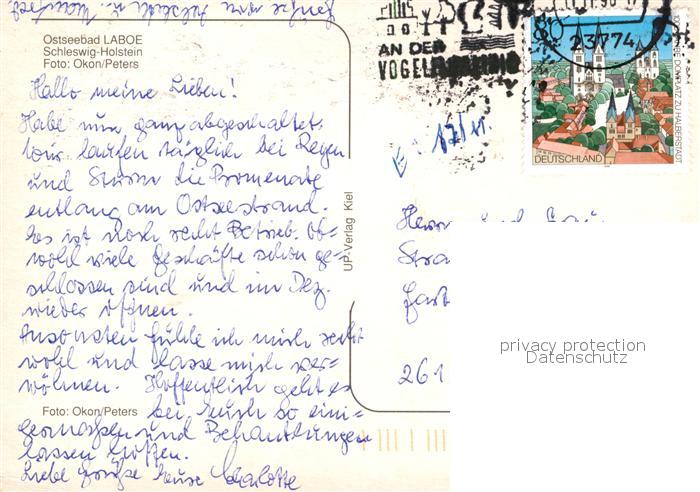 Ostseebad LABOE
Schleswig-Holstein
Foto: Okon/Peters
Hallo meine Lieben!
Habe nun ganz abgeschaltet,
wir laufen täglich bei Regen
und Sturm die Promenate
entlang am Ostseestrand.
Es ist noch recht Betrieb, ob-
wohl viele Geschäfte schon ge-
schlossen sind und im Dez.
wieder öffnen.
Ansonsten fühle ich mich recht
wohl und lasse mich ver-
wöhnen. Hoffentlich geht es
Foto: Okon/Peters bei Euch so eini-
germaßen und Behandlungen
lassen hoffen.
Liebe Grüße Eure Charlotte
UP-Verlag Kiel
AN DER
23774
80
DOMPLATZ ZU HALBERSTADT
DEUTSCHLAND
17/11.
Herrn und Frau
Stra
261
privacy protection
Datenschutz